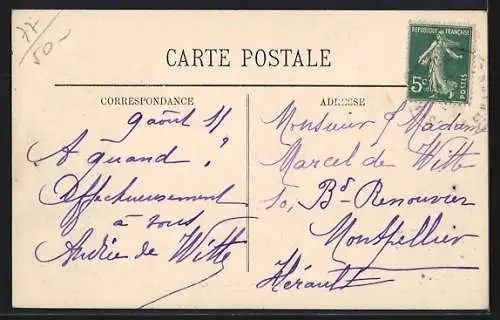 77
50-
CARTE POSTALE
RÉPUBLIQUE FRANÇAISE
5c
POSTES
CORRESPONDANCE
9 août 11
A quand ?
Affectueusement
à vous
Andrée de Witte
ADRESSE
Monsieur & Madame
Marcel de Witte
10, Bd. Renouvier
Montpellier
Hérault